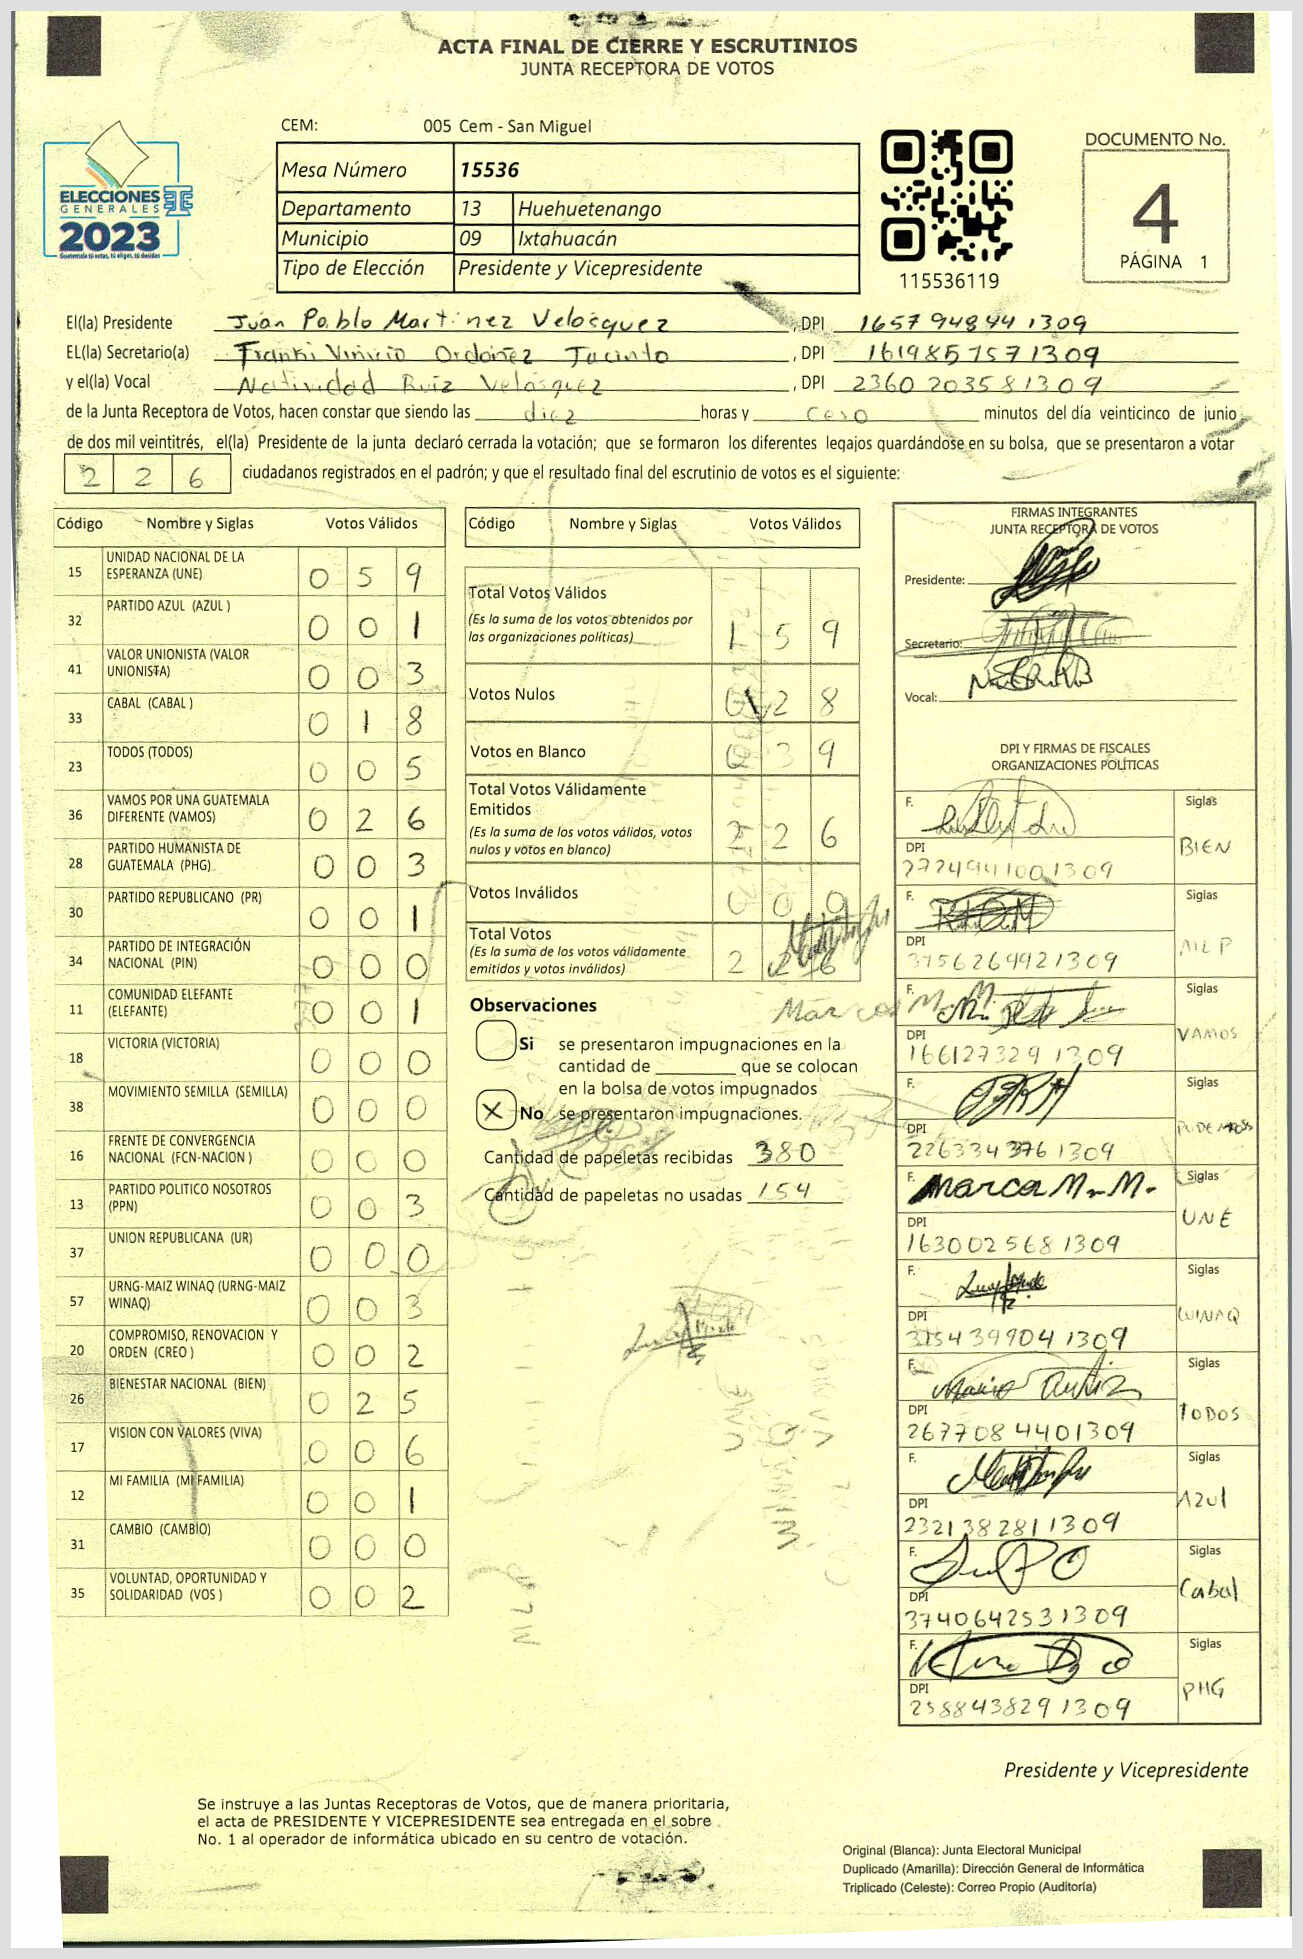 ACTA FINAL DE CIERRE Y ESCRUTINIOS
JUNTA RECEPTORA DE VOTOS
CEM: 005 Cem - San Miguel
DOCUMENTO No.
4
PÁGINA 1
ELECCIONES
GENERALES
2023
Guatemala tú votas, tú eliges, tú decides
Mesa Número 15536
Departamento 13 Huehuetenango
Municipio 09 Ixtahuacán
Tipo de Elección Presidente y Vicepresidente
115536119
El(la) Presidente Juan Pablo Martinez Velásquez, DPI 1657948441309
EL(la) Secretario(a) Franki Vinicio Ordóñez Jacinto, DPI 1619857571309
y el(la) Vocal Natividad Ruiz Velásquez, DPI 2360203581309
de la Junta Receptora de Votos, hacen constar que siendo las diez horas y cero minutos del día veinticinco de junio
de dos mil veintitrés, el(la) Presidente de la junta declaró cerrada la votación; que se formaron los diferentes legajos quardándose en su bolsa, que se presentaron a votar
226 ciudadanos registrados en el padrón; y que el resultado final del escrutinio de votos es el siguiente:
Código Nombre y Siglas Votos Válidos
15 UNIDAD NACIONAL DE LA ESPERANZA (UNE) 059
32 PARTIDO AZUL (AZUL ) 001
41 VALOR UNIONISTA (VALOR UNIONISTA) 003
33 CABAL (CABAL ) 018
23 TODOS (TODOS) 005
36 VAMOS POR UNA GUATEMALA DIFERENTE (VAMOS) 026
28 PARTIDO HUMANISTA DE GUATEMALA (PHG) 003
30 PARTIDO REPUBLICANO (PR) 001
34 PARTIDO DE INTEGRACIÓN NACIONAL (PIN) 000
11 COMUNIDAD ELEFANTE (ELEFANTE) 001
18 VICTORIA (VICTORIA) 000
38 MOVIMIENTO SEMILLA (SEMILLA) 000
16 FRENTE DE CONVERGENCIA NACIONAL (FCN-NACION ) 000
13 PARTIDO POLITICO NOSOTROS (PPN) 003
37 UNION REPUBLICANA (UR) 000
57 URNG-MAIZ WINAQ (URNG-MAIZ WINAQ) 003
20 COMPROMISO, RENOVACION Y ORDEN (CREO ) 002
26 BIENESTAR NACIONAL (BIEN) 025
17 VISION CON VALORES (VIVA) 006
12 MI FAMILIA (MI FAMILIA) 001
31 CAMBIO (CAMBIO) 000
35 VOLUNTAD, OPORTUNIDAD Y SOLIDARIDAD (VOS ) 002
Código Nombre y Siglas Votos Válidos
Total Votos Válidos
(Es la suma de los votos obtenidos por
las organizaciones políticas) 159
Votos Nulos 028
Votos en Blanco 039
Total Votos Válidamente
Emitidos
(Es la suma de los votos válidos, votos
nulos y votos en blanco) 226
Votos Inválidos 000
Total Votos
(Es la suma de los votos válidamente
emitidos y votos inválidos) 226
Observaciones
Si se presentaron impugnaciones en la
cantidad de ________ que se colocan
en la bolsa de votos impugnados
X No se presentaron impugnaciones.
Cantidad de papeletas recibidas 380
Cantidad de papeletas no usadas 154
FIRMAS INTEGRANTES
JUNTA RECEPTORA DE VOTOS
Presidente:
Secretario:
Vocal:
DPI Y FIRMAS DE FISCALES
ORGANIZACIONES POLÍTICAS
F. Siglas
BIEN
DPI
2724941001309
F. Siglas
MLP
DPI
3756269921309
F. Siglas
VAMOS
DPI
1661273291309
F. Siglas
PODEMOS
DPI
2263343761309
F. Marcos M. M. Siglas
UNE
DPI
1630025681309
F. Siglas
WINAQ
DPI
3154399041309
F. Siglas
TODOS
DPI
2677084401309
F. Siglas
AZUL
DPI
2321382811309
F. Siglas
Cabal
DPI
3740642531309
F. Siglas
PHG
DPI
2588438291309
Presidente y Vicepresidente
Se instruye a las Juntas Receptoras de Votos, que de manera prioritaria,
el acta de PRESIDENTE Y VICEPRESIDENTE sea entregada en el sobre
No. 1 al operador de informática ubicado en su centro de votación.
Original (Blanca): Junta Electoral Municipal
Duplicado (Amarilla): Dirección General de Informática
Triplicado (Celeste): Correo Propio (Auditoría)